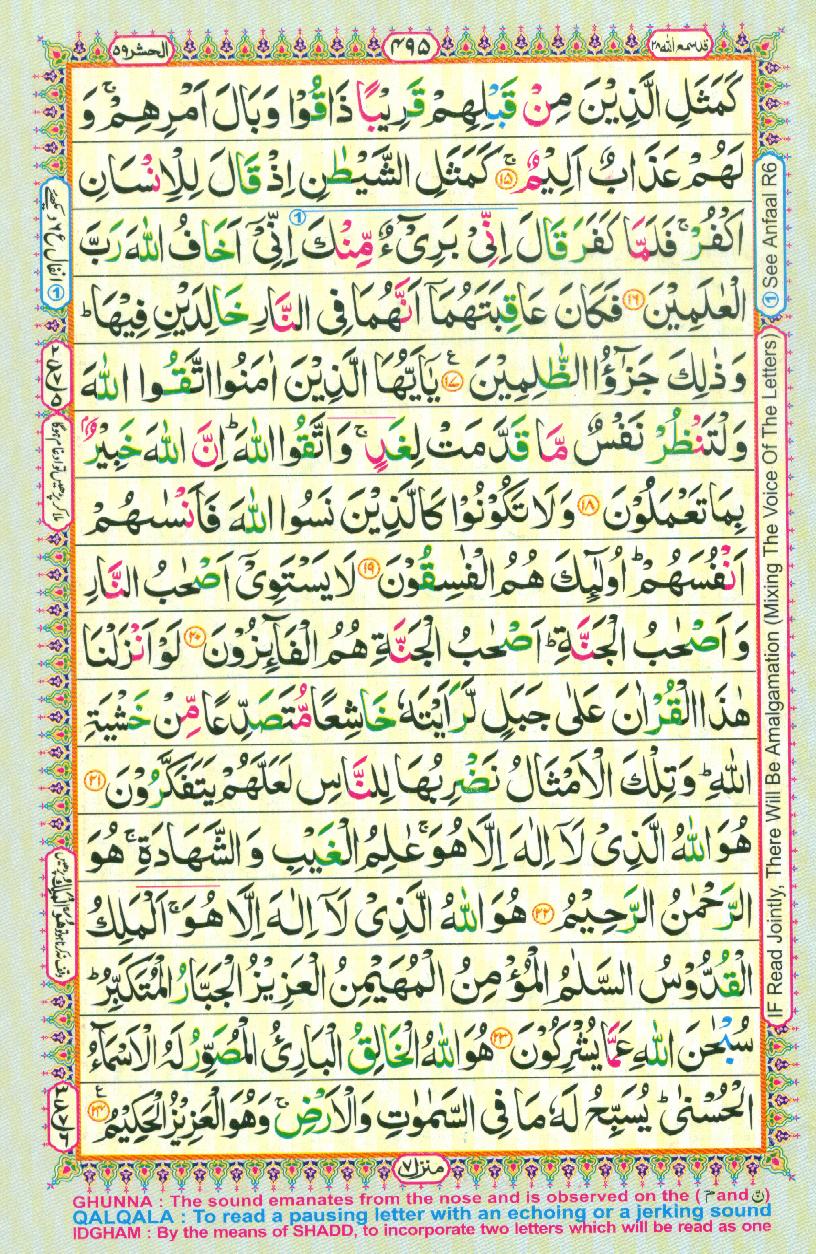 قد سمع الله ۲۸
۴۹۵
الحشر ۵۹
كَمَثَلِ الَّذِیْنَ مِنْ قَبْلِهِمْ قَرِیْبًا ذَاقُوْا وَبَالَ اَمْرِهِمْ ۚ وَ
لَهُمْ عَذَابٌ اَلِیْمٌ ۚ ﴿۱۵﴾ كَمَثَلِ الشَّیْطٰنِ اِذْ قَالَ لِلْاِنْسَانِ
اكْفُرْ ۚ فَلَمَّا كَفَرَ قَالَ اِنِّیْ بَرِیْٓءٌ مِّنْكَ اِنِّیْۤ اَخَافُ اللّٰهَ رَبَّ
الْعٰلَمِیْنَ ﴿۱۶﴾ فَكَانَ عَاقِبَتَهُمَاۤ اَنَّهُمَا فِی النَّارِ خَالِدَیْنِ فِیْهَا ؕ
وَ ذٰلِكَ جَزٰٓؤُا الظّٰلِمِیْنَ ﴿۱۷﴾ یٰۤاَیُّهَا الَّذِیْنَ اٰمَنُوا اتَّقُوا اللّٰهَ
وَلْتَنْظُرْ نَفْسٌ مَّا قَدَّمَتْ لِغَدٍ ۚ وَ اتَّقُوا اللّٰهَ ؕ اِنَّ اللّٰهَ خَبِیْرٌۢ
بِمَا تَعْمَلُوْنَ ﴿۱۸﴾ وَ لَا تَكُوْنُوْا كَالَّذِیْنَ نَسُوا اللّٰهَ فَاَنْسٰىهُمْ
اَنْفُسَهُمْ ؕ اُولٰٓئِكَ هُمُ الْفٰسِقُوْنَ ﴿۱۹﴾ لَا یَسْتَوِیْۤ اَصْحٰبُ النَّارِ
وَ اَصْحٰبُ الْجَنَّةِ ؕ اَصْحٰبُ الْجَنَّةِ هُمُ الْفَآئِزُوْنَ ﴿۲۰﴾ لَوْ اَنْزَلْنَا
هٰذَا الْقُرْاٰنَ عَلٰی جَبَلٍ لَّرَاَیْتَهٗ خَاشِعًا مُّتَصَدِّعًا مِّنْ خَشْیَةِ
اللّٰهِ ؕ وَ تِلْكَ الْاَمْثَالُ نَضْرِبُهَا لِلنَّاسِ لَعَلَّهُمْ یَتَفَكَّرُوْنَ ﴿۲۱﴾
هُوَ اللّٰهُ الَّذِیْ لَاۤ اِلٰهَ اِلَّا هُوَ ۚ عٰلِمُ الْغَیْبِ وَ الشَّهَادَةِ ۚ هُوَ
الرَّحْمٰنُ الرَّحِیْمُ ﴿۲۲﴾ هُوَ اللّٰهُ الَّذِیْ لَاۤ اِلٰهَ اِلَّا هُوَ ۚ اَلْمَلِكُ
الْقُدُّوْسُ السَّلٰمُ الْمُؤْمِنُ الْمُهَیْمِنُ الْعَزِیْزُ الْجَبَّارُ الْمُتَكَبِّرُ ؕ
سُبْحٰنَ اللّٰهِ عَمَّا یُشْرِكُوْنَ ﴿۲۳﴾ هُوَ اللّٰهُ الْخَالِقُ الْبَارِئُ الْمُصَوِّرُ لَهُ الْاَسْمَآءُ
الْحُسْنٰی ؕ یُسَبِّحُ لَهٗ مَا فِی السَّمٰوٰتِ وَ الْاَرْضِ ۚ وَ هُوَ الْعَزِیْزُ الْحَكِیْمُ ﴿۲۴﴾
① See Anfaal R6
IF Read Jointly, There Will Be Amalgamation (Mixing The Voice Of The Letters)
منزل ۷
GHUNNA : The sound emanates from the nose and is observed on the ( مّ and نّ )
QALQALA : To read a pausing letter with an echoing or a jerking sound
IDGHAM : By the means of SHADD, to incorporate two letters which will be read as one